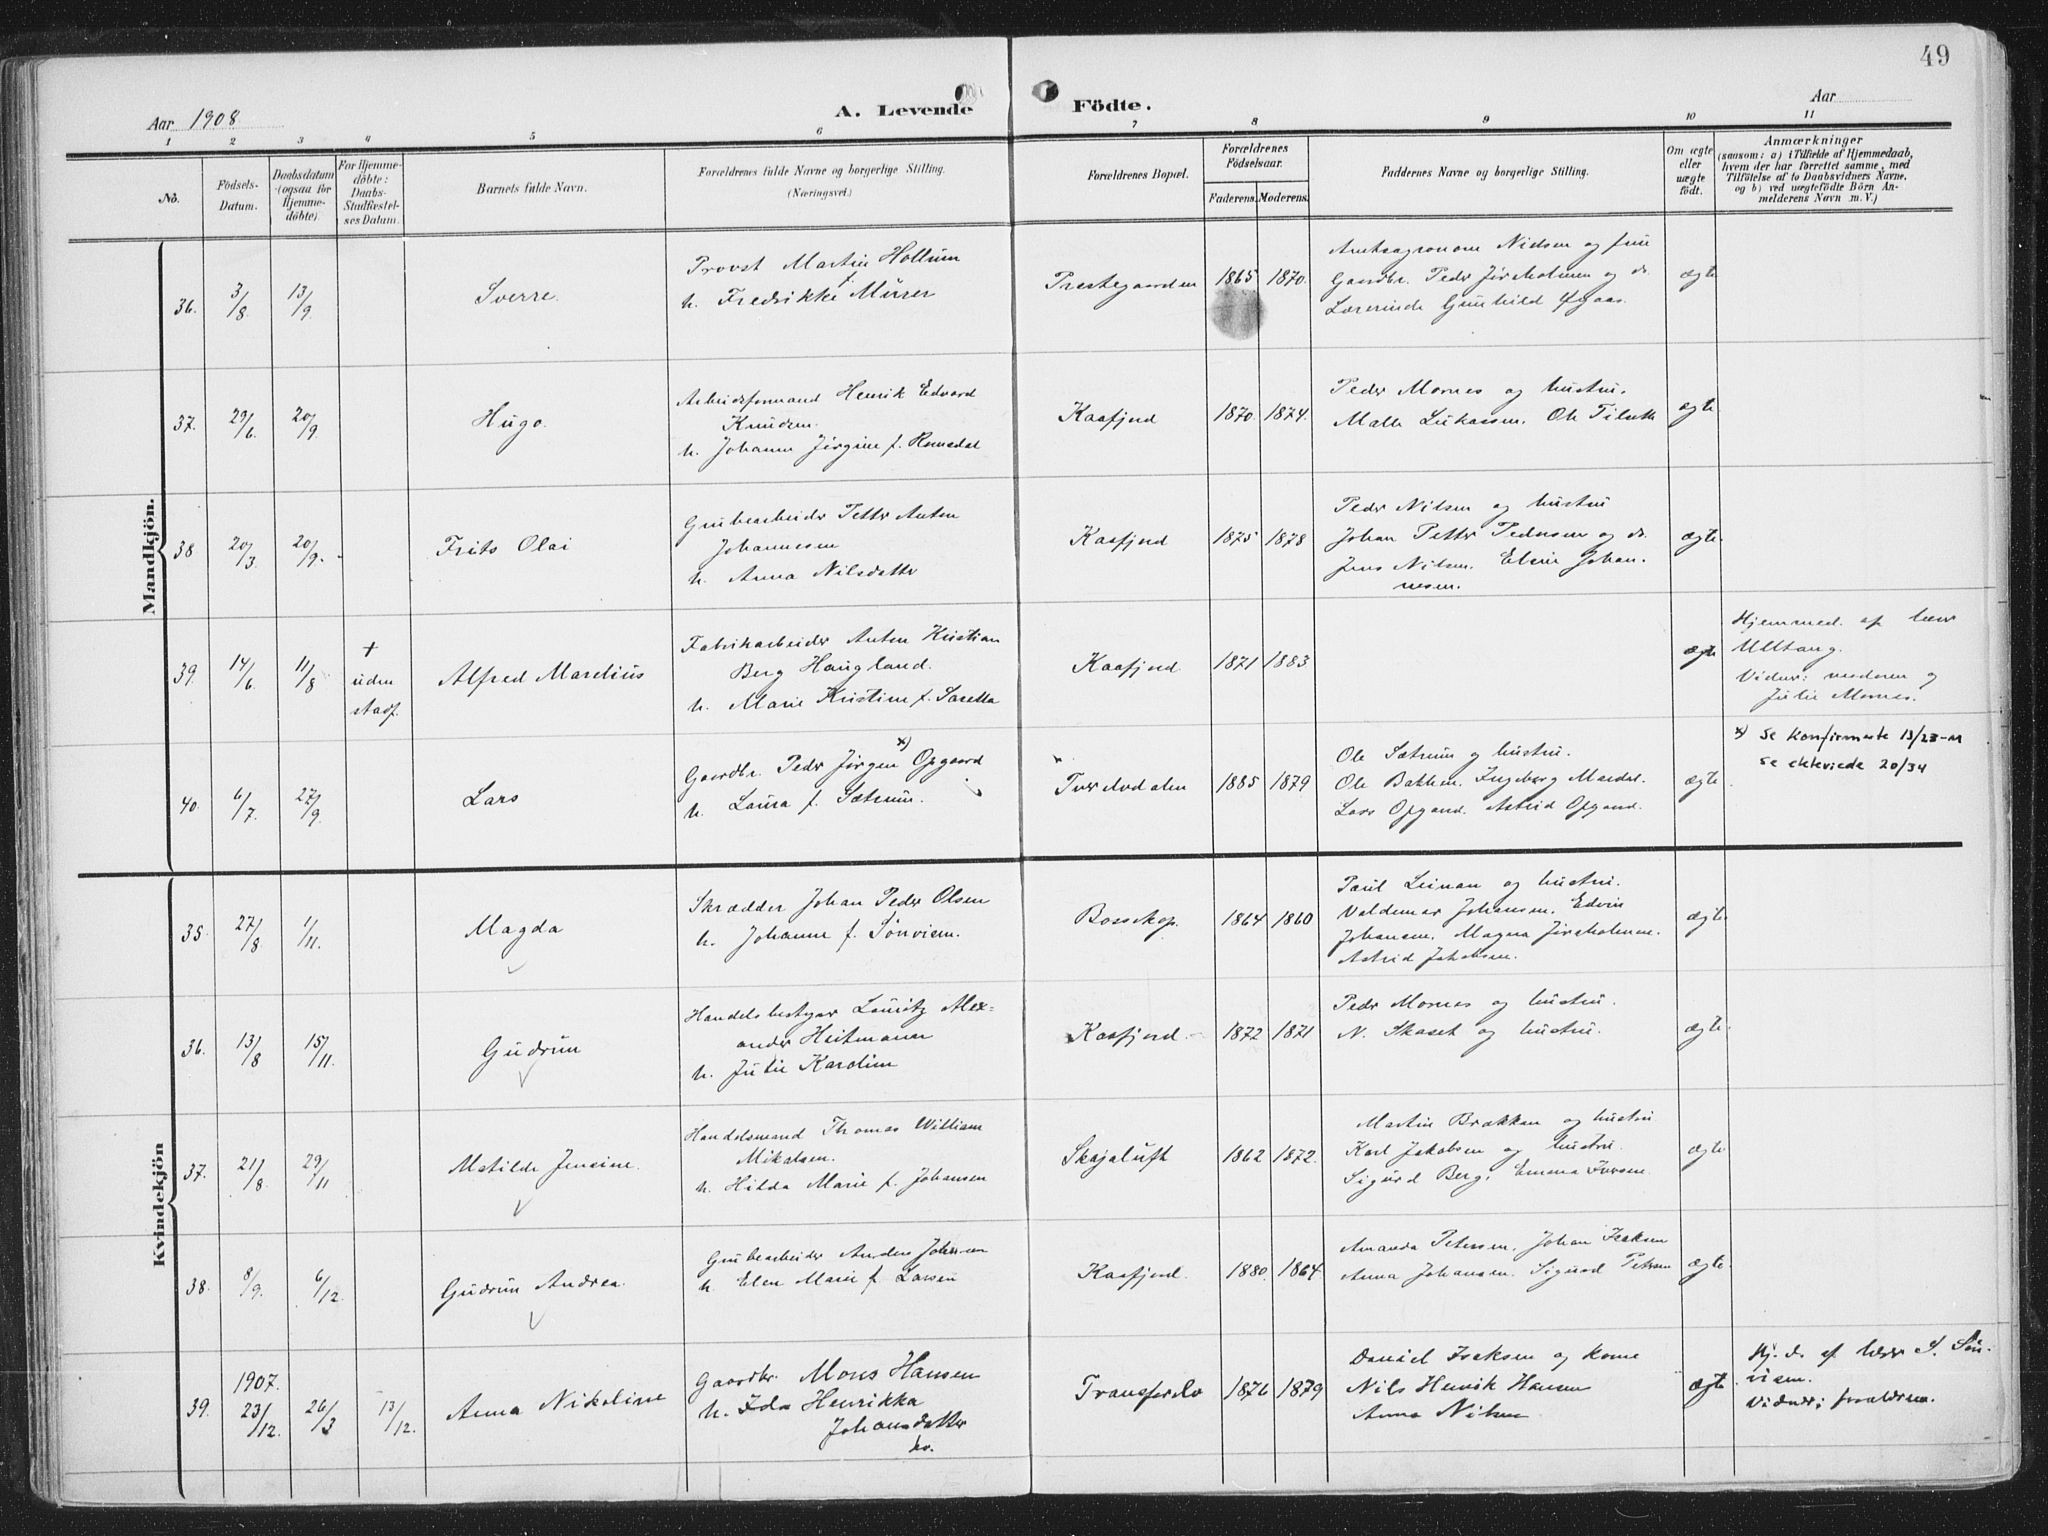 49
Aar 1908
A. Levende Födte.
Aar
1 2 3 4 5 6 7 8 9 10 11
No.
Födsels-Datum.
Daabsdatum (ogsaa for Hjemme-döbte).
For Hjemme-döbte: Daabs-Stadfæstel-ses Datum.
Barnets fulde Navn.
Forældrenes fulde Navne og borgerlige Stilling.
(Næringsvei.)
Forældrenes Bopæl.
Forældrenes Födselsaar.
Faderens. Moderens.
Faddernes Navne og borgerlige Stilling.
Om ægte eller uægte födt.
Anmærkninger
(saasom: a) i Tilfælde af Hjemmedaab,
hvem der har forrettet samme, med
Tilföielse af to Daabsvidners Navne,
og b) ved uægtefödte Börn An-
melderens Navn m. V.)
Mandkjön.
36. 3/8 13/9 Sverre.
Provst Martin Hollum
h. Fredrikke f. Mürer
Prestegaarden 1865 1870.
Amtsagronom Nielsen og frue
Gaardbr. Peder Jørsholmen og do.
Lærerinde Gunhild Øgaas.
ægte
37. 29/6. 20/9 Hugo.
Arbeidsformand Henrik Edvard
Knudsen.
h. Johanne Jørgine f. Romsdal
Kaafjord 1870. 1874.
Peder Mornes og hustru.
Malle Lukassen. Ole
ægte
38 20/3. 20/9. Frits Olai
Grubearbeider Petter Anton
Johannesen
h. Anna Nilsdatter
Kaafjord 1875 1878
Peder Nilsen og hustru
Johan Petter Pedersen og do.
Jens Nilsen. Eline Johan-
nesen.
ægte
39. 14/6. 11/8 + uden stadf. Alfred Marelius
Fabrikarbeider Anton Kristian
Berg Haugland.
h. Marie Kristine f. Saretta
Kaafjord 1871 1883
ægte
Hjemmed. af lærer
Ulltang.
Vidner: moderen og
Julie Mornes.
40. 6/7. 27/9. Lars
Gaardbr. Peder Jørgen x) Opgaard
h. Laura f. Sætrum.
Tverelvdalen 1885 1879
Ole Sætrum og hustru.
Ole Bakken. Ingeborg Mardal.
Lars Opgaard. Astrid Opgaard.
ægte
x) Se konfirmerte 13/23-M
Se ekteviede 20/34
Kvindekjön
35. 27/8 1/11. Magda
Skrædder Johan Peder Olsen
h. Johanne f. Sønvisen.
Bossekop. 1864 1860
Paul Leinan og hustru.
Valdemar Johansen. Edvin
Johansen. Magna Jørsholmen.
Astrid Jakobsen.
ægte
36. 13/8 15/11. Gudrun
Handelsbestyrer Lauritz Alex-
ander Heitmann
h. Julie Karoline
Kaafjord. 1872 1871
Peder Mornes og hustru.
N. Skaset og hustru.
ægte
37. 21/8 29/11 Matilde Jensine.
Handelsmand Thomas William
Mikalsen.
h. Hilda Marie f. Johansen
Skajaluft 1862 1872.
Martin Brækken og hustru
Karl Jakobsen og hustru.
Sigurd Berg. Emma Iversen.
ægte
38. 8/9. 6/12. Gudrun Andrea.
Grubearbeider Anders Johnsen
h. Elen Marie f. Larsen
Kaafjord. 1880. 1864
Amanda Petersen. Johan Isaksen
Anna Johansen. Sigurd Petersen
ægte.
39. 1907. 23/12. 26/3 13/12. Anna Nikoline
Gaardbr. Mons Hansen
h. Ida Henrikka
Johansdatter
kv.
Transfarelv 1876 1879
Daniel Isaksen og kone
Nils Henrik Hansen
Anna Nilsen
ægte
Hj. d. af lærer S. Søn-
visen.
Vidner: forældrene.